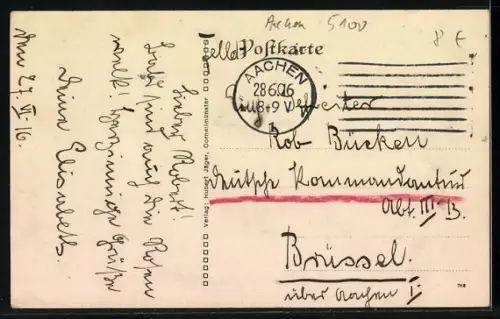 Aachen 5100
8 €
Feldpostkarte
AACHEN
28.6.16
8-9 V
1
Rob Bücken
Deutsche Kommandantur
Abt. III B.
Brüssel.
über Aachen I.
Verlag: Hubert Jäger, Cornelimünster
Lieber Robert!
sind auch die Rosen
welk! Herzinnige Grüße
Deine Elisabeth.
den 27. VI. 16.